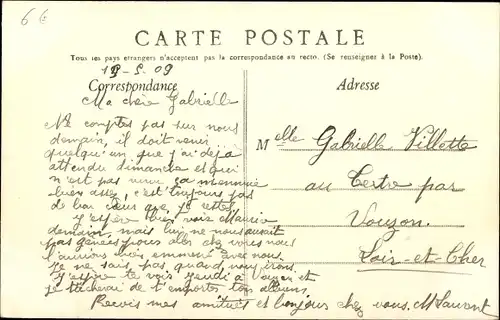 6 €
CARTE POSTALE
Tous les pays étrangers n'acceptent pas la correspondance au recto. (Se renseigner à la Poste).
19-5-09
Correspondance
Adresse
Ma chère Gabrielle
Ne comptes pas sur nous
demain, il doit venir
quelqu'un que j'ai déjà
attendu dimanche et qui
n'est pas venu ça m'ennuie
bien assez, c'est toujours pas
de bon cœur que je reste.
J'espère bien voir Maurice
demain, mais lui ne nous aurait
pas gênées pour aller chez vous nous
l'aurions bien emmené avec nous.
Je ne sais pas quand nous irons.
J'espère te voir jeudi à et
je tâcherai de t'emporter ton
Reçois mes amitiés et bonjours chez vous. M Laurent
Melle Gabrielle Villette
au Tertre par
Vouzon.
Loir-et-Cher